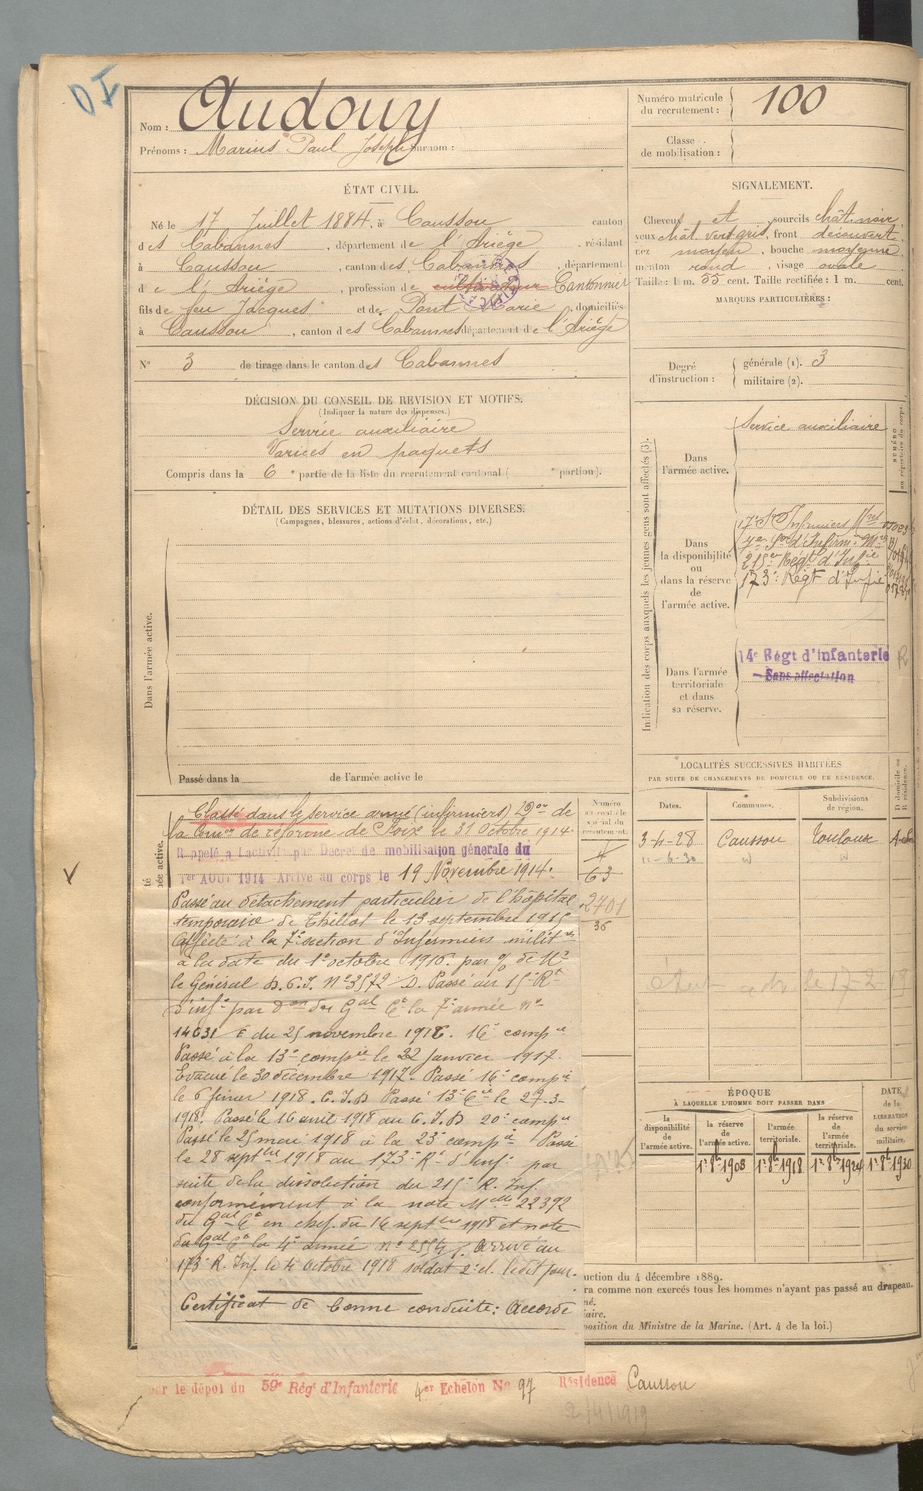 DI
Nom : Audouy
Prénoms : Marius Paul Joseph surnom :
Numéro matricule du recrutement : 100
Classe de mobilisation :
ÉTAT CIVIL.
Né le 17 Juillet 1884, à Caussou canton
des Cabannes, département de l'Ariège, résidant
à Caussou, canton des Cabannes, département
de l'Ariège, profession de cultivateur Cantonnier
fils de feu Jacques et de Pont Marie, domiciliés
à Caussou, canton des Cabannes département de l'Ariège
N° 3 de tirage dans le canton des Cabannes
SIGNALEMENT.
Cheveux et sourcils chât. noir
yeux chât. vert gris, front découvert
nez moyen, bouche moyenne
menton rond, visage ovale
Taille : 1 m. 55 cent. Taille rectifiée : 1 m. cent.
MARQUES PARTICULIÈRES :
Degré d'instruction : générale (1). 3
militaire (2).
DÉCISION DU CONSEIL DE REVISION ET MOTIFS.
(Indiquer la nature des dispenses.)
Service auxiliaire
Varices en paquets
Compris dans la 6e partie de la liste du recrutement cantonal ( e portion).
DÉTAIL DES SERVICES ET MUTATIONS DIVERSES.
(Campagnes, blessures, actions d'éclat, décorations, etc.)
Dans l'armée active.
Passé dans la de l'armée active le
Indication des corps auxquels les jeunes gens sont affectés (3).
Dans l'armée active.
Service auxiliaire
Dans la disponibilité ou dans la réserve de l'armée active.
215e Régt d'Infie
173e Régt d'Infie
Dans l'armée territoriale et dans sa réserve.
14e Régt d'infanterie
Sans affectation
LOCALITÉS SUCCESSIVES HABITÉES
PAR SUITE DE CHANGEMENTS DE DOMICILE OU DE RÉSIDENCE.
Dates. Communes. Subdivisions de région. D domicile ou R résidence.
3-4-28 Caussou Toulouse
Classé dans le service armé (infirmiers) Don de
la Comon de réforme de Foix du 31 Octobre 1914.
Rappelé à l'activité par Décret de mobilisation générale du
1er AOUT 1914 Arrivé au corps le 19 Novembre 1914.
Passé au détachement particulier de l'hôpital
temporaire de Thillot le 13 septembre 1915
Affecté à la 7e section d'Infirmiers milites
à la date du 1er octobre 1916. par % de Mr
le Général D.G.I. N° 3572 D. Passé au 15e Rt
d'infie par Don du Gal Ct la 7e armée n°
14631 E du 25 novembre 1916. 16e compie
Passé à la 13e compie le 22 janvier 1917.
Evacué le 30 décembre 1917. Passé 16e compie
le 6 février 1918. C.I.D Passé 13e Cie le 27-3-
1918. Passé le 16 avril 1918 au C.I.D 20e compie
Passé le 25 mai 1918 à la 23e compie Passé
le 28 septbre 1918 au 173e Rt d'inf. par
suite de la dissolution du 215e R. Inf.
conformément à la note Melle 22392
du Gal Ct en chef du 16 septbre 1918 et note
du Gal Ct la 4e armée n° 2554/. Arrivé au
173e R. Inf. le 4 octobre 1918 soldat 2e cl. ledit jour.
Certificat de bonne conduite : Accordé
63
2701
36
ÉPOQUE
À LAQUELLE L'HOMME DOIT PASSER DANS
la disponibilité de l'armée active. la réserve de l'armée active. l'armée territoriale. la réserve de l'armée territoriale.
DATE de la LIBÉRATION du service militaire.
1er 8bre 1908 1er 8bre 1918 1er 8bre 1924 1er 8bre 1930
uction du 4 décembre 1889.
ra comme non exercés tous les hommes n'ayant pas passé au drapeau.
né.
iaire.
position du Ministre de la Marine. (Art. 4 de la loi.)
par le dépôt du 59e Régt d'Infanterie 4er Echelon No 97 Résidence Caussou
2/4/1919